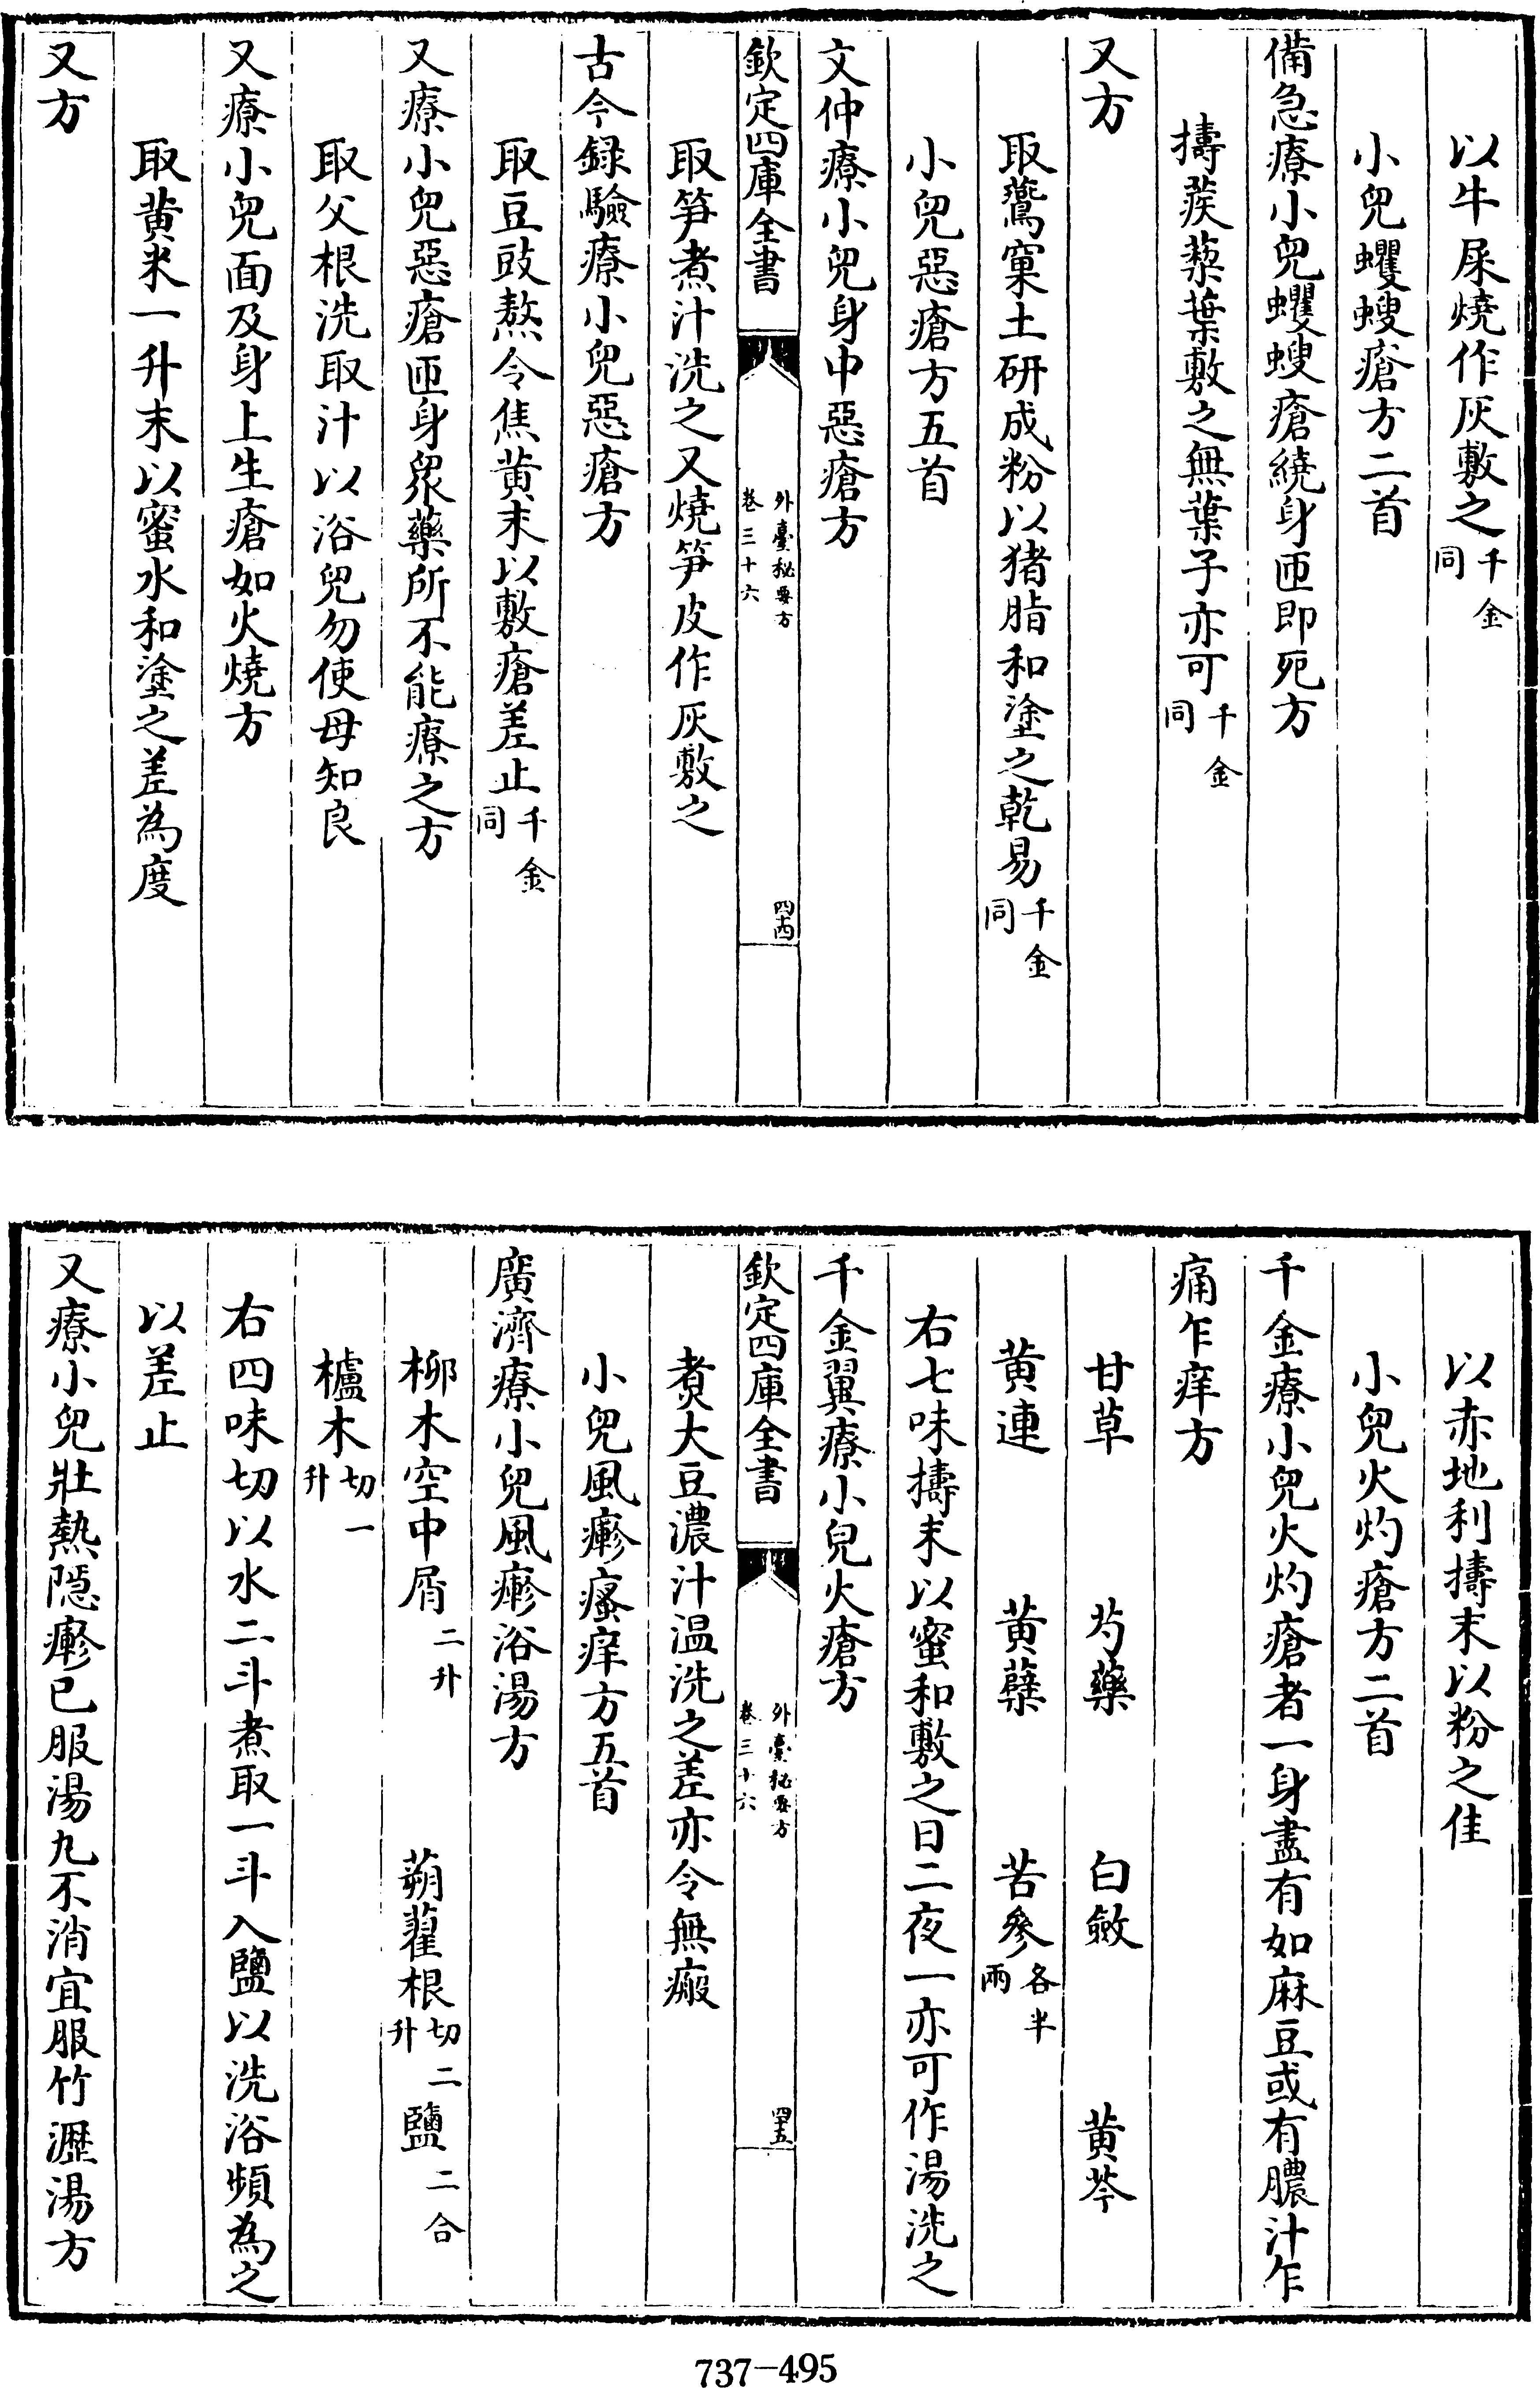 以牛屎燒作灰敷之千金同
小兒蠼螋瘡方二首
備急療小兒蠼螋瘡繞身匝即死方
擣蒺䔧葉敷之無葉子亦可千金同
又方
取鷰窠土研成粉以猪脂和塗之乾易千金同
小兒惡瘡方五首
文仲療小兒身中惡瘡方
欽定四庫全書 外臺秘要方卷三十六 四十四
取笋煮汁洗之又燒笋皮作灰敷之
古今録驗療小兒惡瘡方
取豆豉熬令焦黄末以敷瘡差止千金同
又療小兒惡瘡匝身衆藥所不能療之方
取父根洗取汁以浴兒勿使母知良
又療小兒面及身上生瘡如火燒方
取黄米一升末以蜜水和塗之差為度
又方
以赤地利擣末以粉之佳
小兒火灼瘡方二首
千金療小兒火灼瘡者一身盡有如麻豆或有膿汁乍
痛乍痒方
甘草 芍藥 白斂 黄芩
黄連 黄蘗 苦參各半兩
右七味擣末以蜜和敷之日二夜一亦可作湯洗之
千金翼療小兒火瘡方
欽定四庫全書 外臺秘要方卷三十六 四十五
煮大豆濃汁温洗之差亦令無瘢
小兒風㾦瘙痒方五首
廣濟療小兒風㾦浴湯方
柳木空中屑二升 蒴藋根切二升 鹽二合
櫨木切一升
右四味切以水二斗煮取一斗入鹽以洗浴頻為之
以差止
又療小兒壯熱隠㾦已服湯丸不消宜服竹瀝湯方
737-495